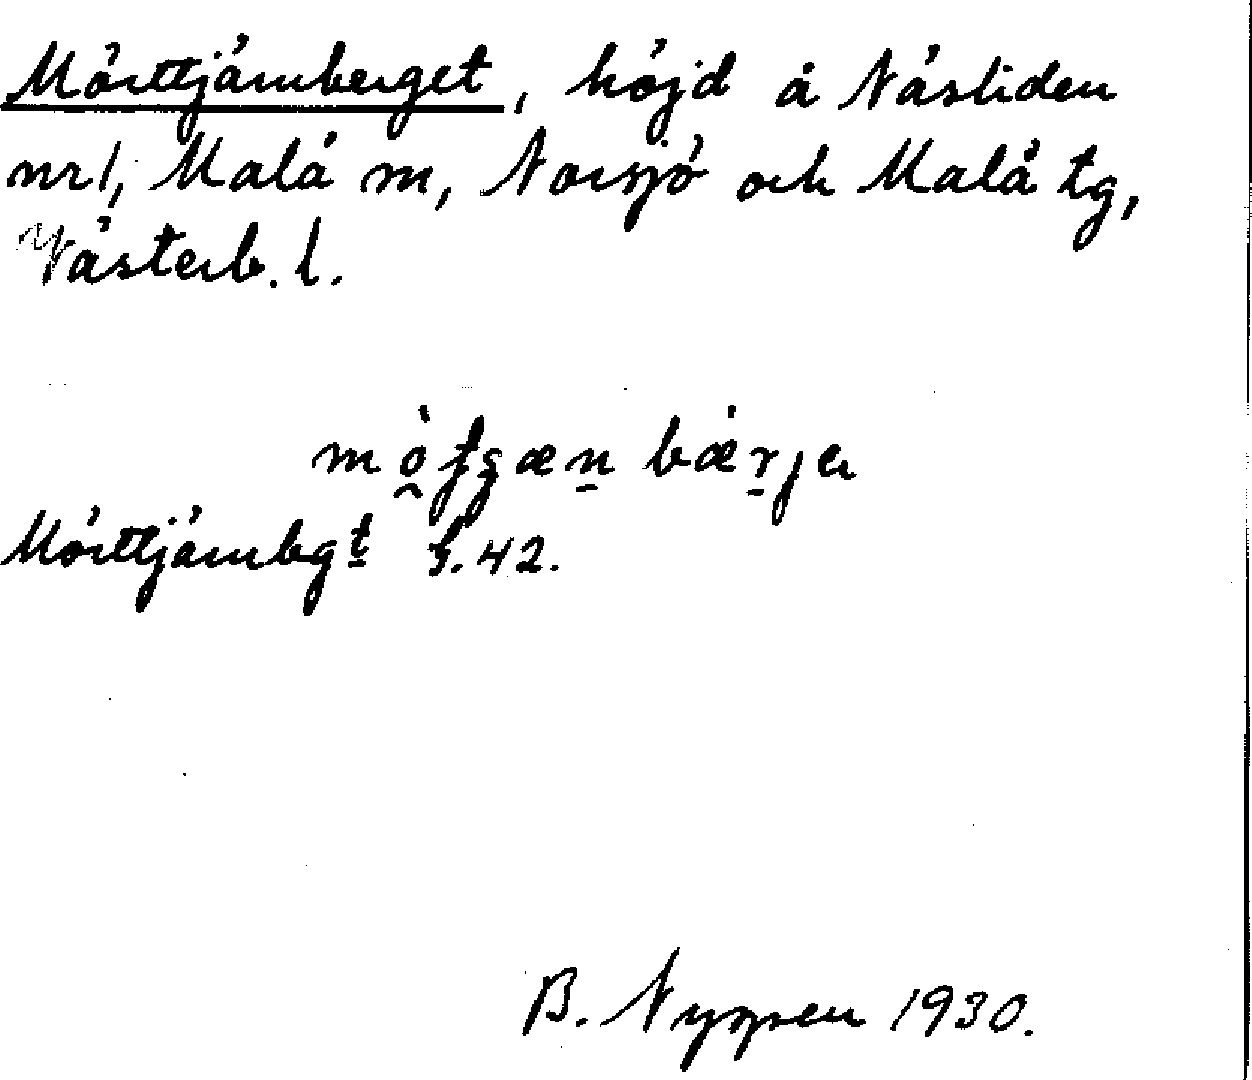 Mörttjärnberget, höjd å Näsliden
nr 1, Malå m, Norsjö och Malå tg,
Västerb. l.
Mörttjärnbgt S. 42.
1930.